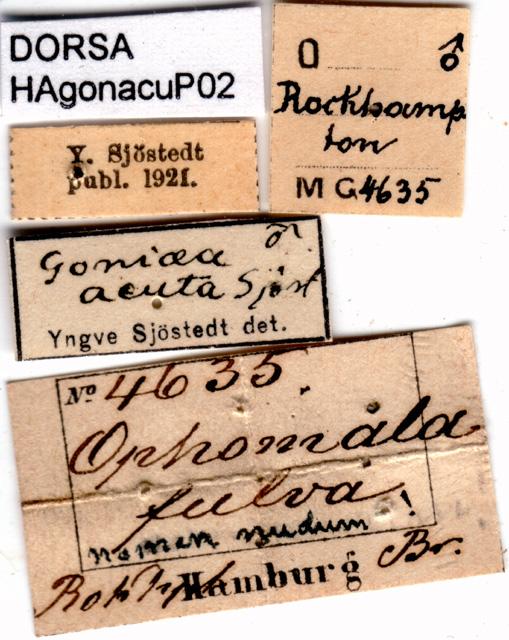 DORSA
HAgonacuP02
O ♂
Rockhamp
ton
MG 4635
Y. Sjöstedt
publ. 1921.
Goniaea ♂
acuta Sjöst
Yngve Sjöstedt det.
No 4635.
Ophomala
fulva
nomen nudum!
Br.
Hamburg